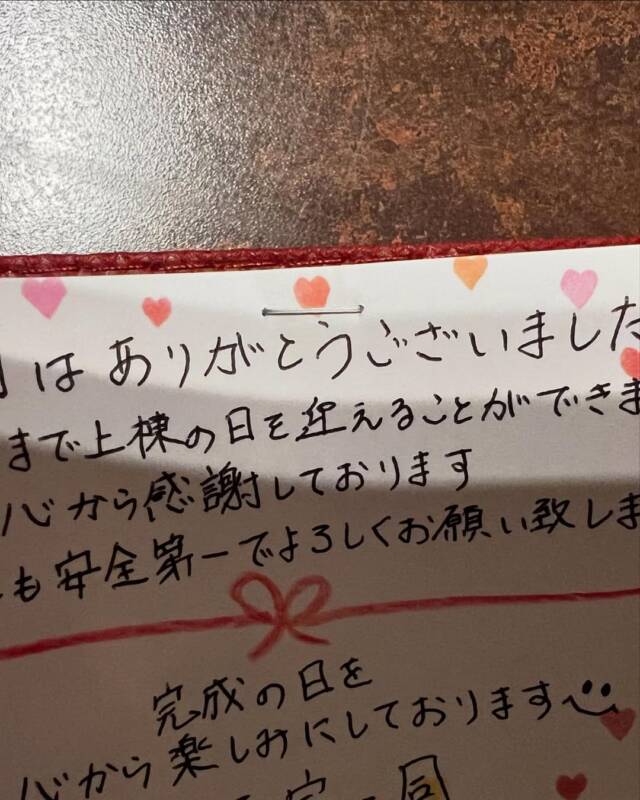 はありがとうございました
まで上棟の日を迎えることができま
心から感謝しております
も安全第一でよろしくお願い致しま
完成の日を
心から楽しみにしております
一同